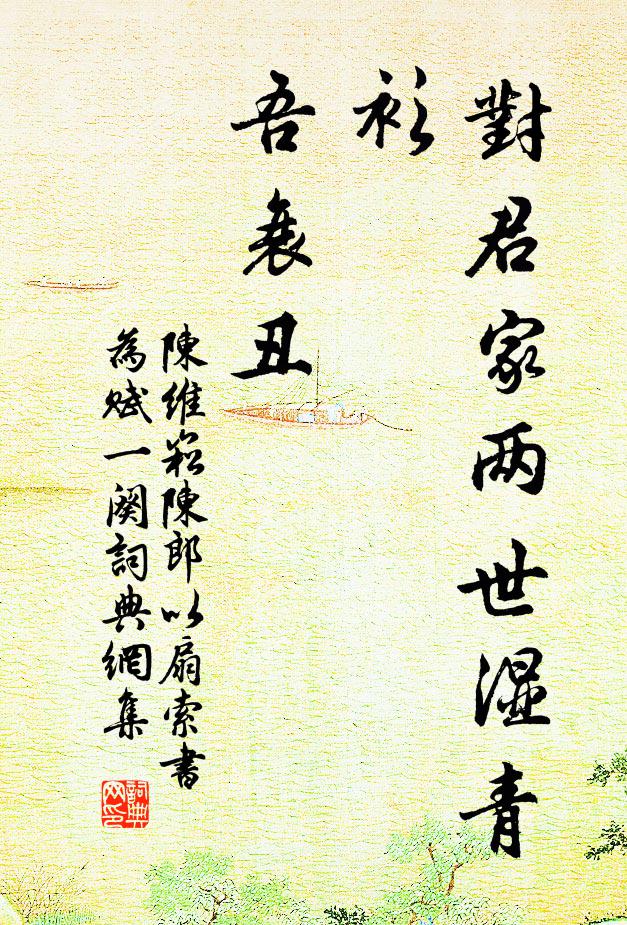 對君家两世湿青
衫
吾衰丑
陳維崧陳郎以扇索書
為賦一闋詞典網集
詞典
网印